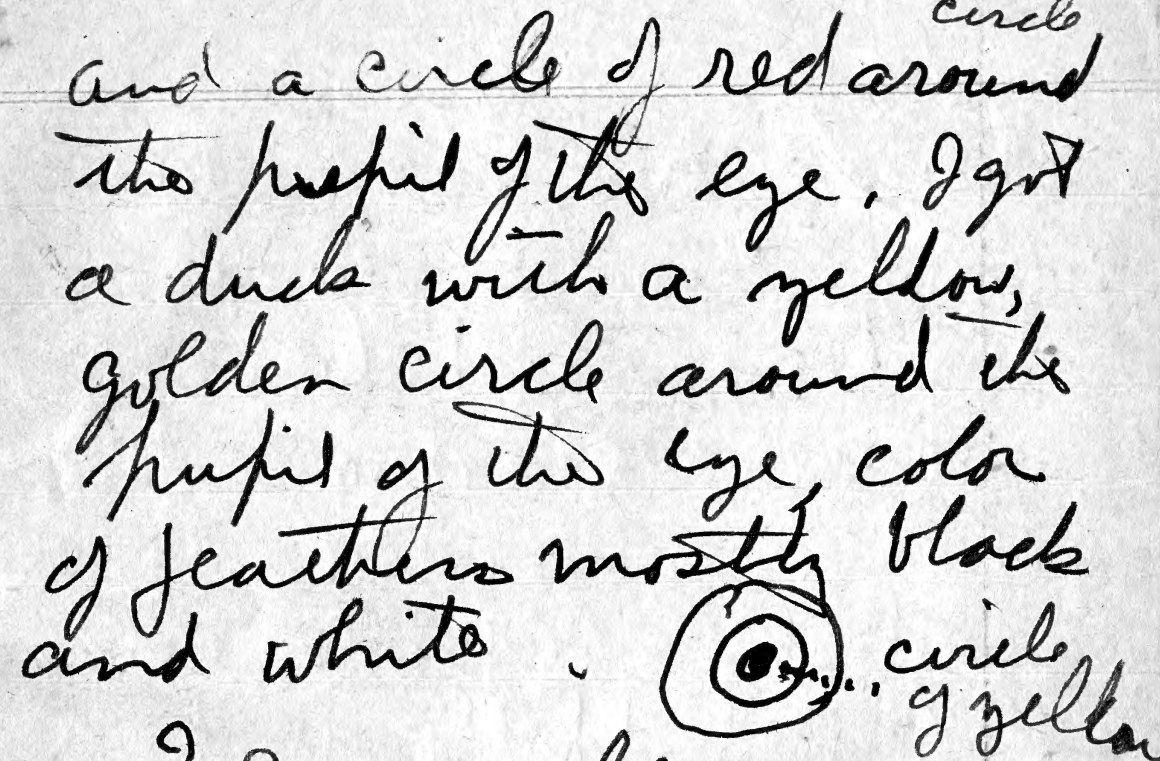 circle
and a circle of red around
the pupil of the eye. I got
a duck with a yellow,
golden circle around the
pupil of the eye, color
of feathers mostly black
and white. circle
of yellow